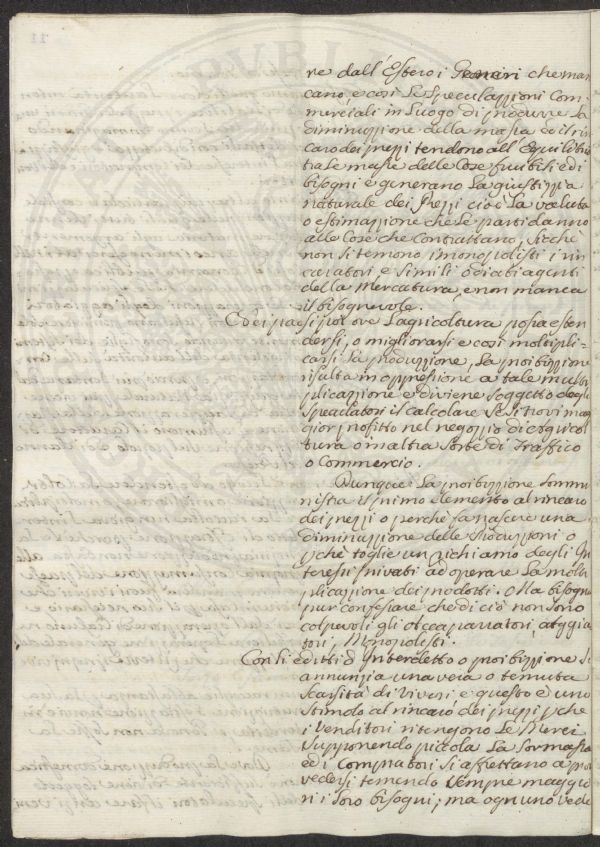 re dall'Estero i Generi che man
cano, e così Le Speculazzioni Com,,
merciali in Luogo di produrre La
diminuzzione della massa ed il rin
caro dei prezzi tendono all'Equilibrio
tra Le masse delle Cose fruibili e di
bisogni e generano La giustizzia
naturale dei Prezzi cioè La valuta
o estimazzione che Le parti danno
alle Cose che Contrattano, sicchè
non si temono i monopolisti i rin
caratori e simili odiati agenti
della Mercatura, e non manca
il bisognevole.
E dei paesi poi ove L'agricoltura possa esten
dersi, o migliorarsi e così moltipli-
carsi La produzzione, La proibizzione
risulta in oppressione a tale multi
plicazzione e diviene soggetto degli
Speculatori il calcolare se si trovi mag
gior profitto nel negozzio di agricol
tura o in altra Sorte di Traffico
o Commercio.
Dunque La proibizzione sommi
nistra il primo elemento al rincaro
dei prezzi o perchè fa nascere una
diminuzzione delle Produzzioni o
pchè toglie un richiamo degli In
teressi privati ad operare La molti
plicazione dei prodotti. Ma bisogna
pur confessare che di ciò non sono
colpevoli gli Accaparratori, aggia
tori, Monopolisti.
Con Li editti d'Interdetto o proibizzione si
annunzia una vera o temuta
scarsità di Viveri e questo è uno
stimolo al rincaro dei prezzi pche
i Venditori ritengono Le Merci
supponendo piccola La
ed i Compratori si affrettano a pro
vedersi temendo sempre maggio
ri i loro bisogni; ma ognuno vede